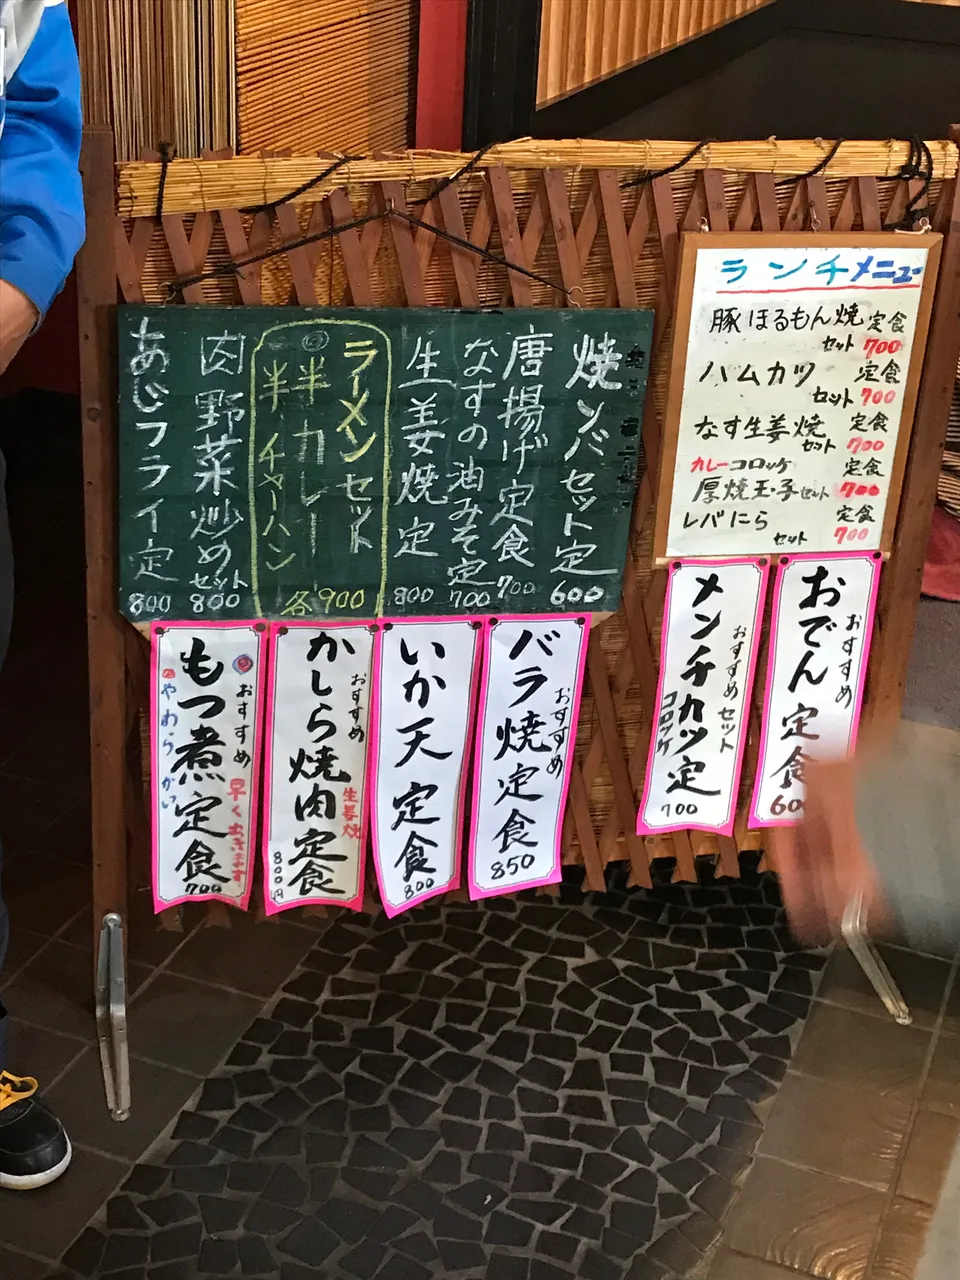 焼ンバセット定
600
唐揚げ定食
700
なすの油みそ定
700
生姜焼定
800
ラーメンセット
半カレー
半チャーハン
各900
肉野菜炒めセット
800
あじフライ定
800
ランチメニュー
豚ほるもん焼定食
セット700
ハムカツ 定食
セット700
なす生姜焼 定食
セット700
カレーコロッケ 定食
厚焼玉子セット700
レバにら 定食
セット700
おすすめ
おでん定食
おすすめセット
メンチカツ定
コロッケ
700
おすすめ
バラ焼定食
850
いか天定食
800
おすすめ
かしら焼肉定食
生姜焼
800円
おすすめ
もつ煮定食
やわらかい
700